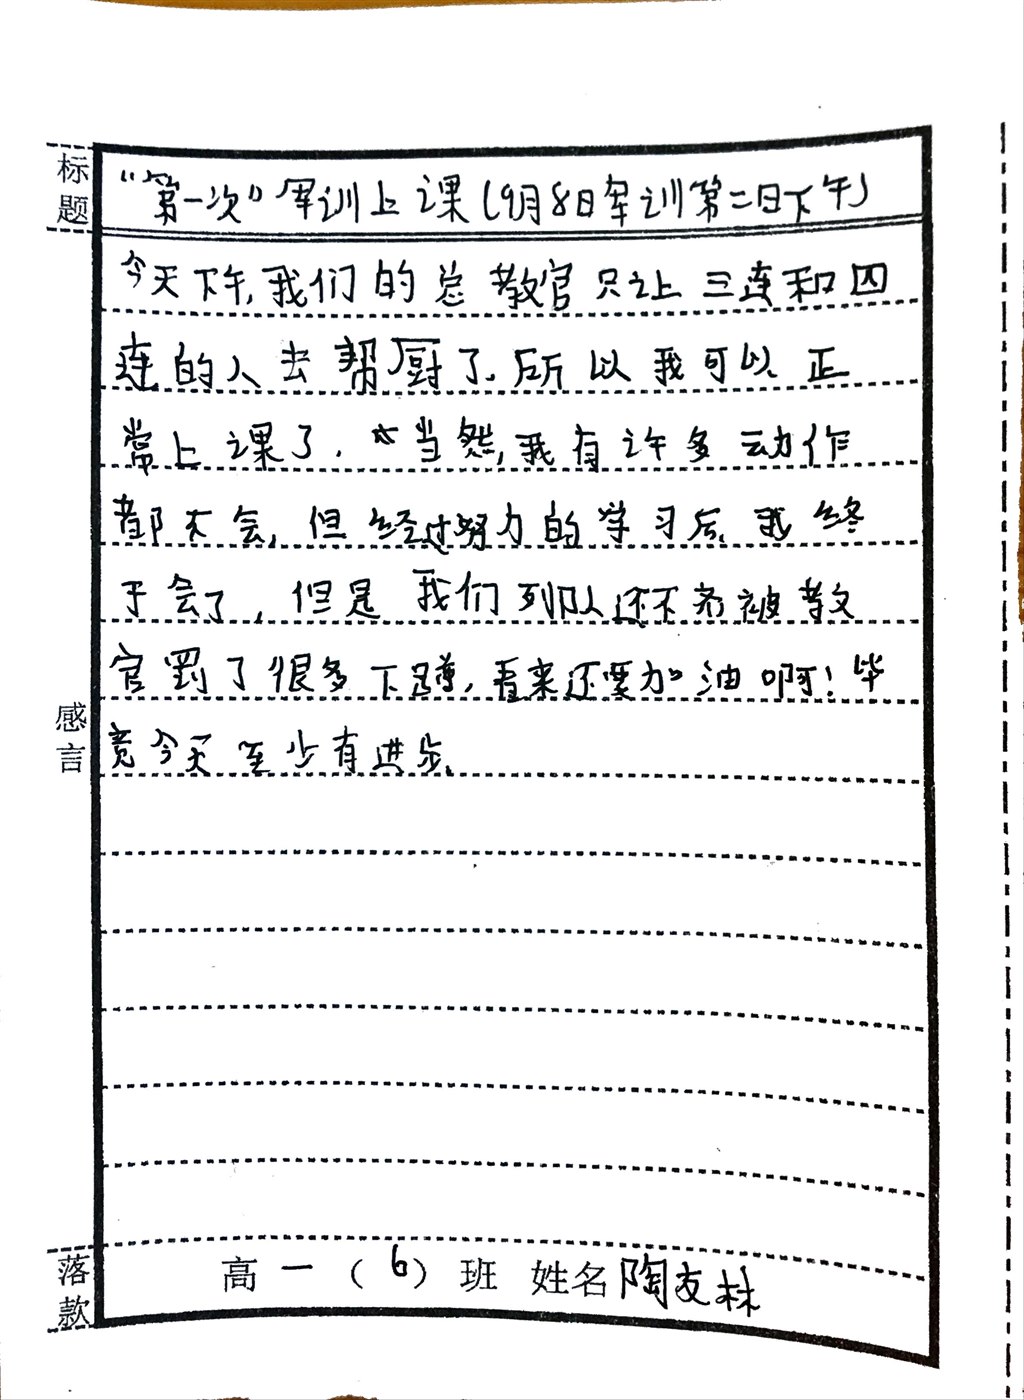 标题
"第一次"军训上课(9月8日军训第二日下午)
今天下午,我们的总教官只让三连和四
连的人去帮厨了.所以我可以正
常上课了.当然,我有许多动作
都不会,但经过努力的学习后,我终
于会了,但是我们列队还不齐被教
官罚了很多下蹲,看来还要加油啊!毕
竟今天至少有进步.
感言
落款
高一(6)班 姓名陶友林